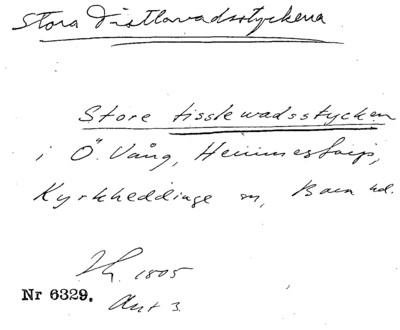 Stora Tistlavadsstyckena
Store tisslewadsstycken
i Ö. Vång, Hemmestorp,
Kyrkheddinge sn, Bara hd.
1805
Nr 6329. Akt 3.